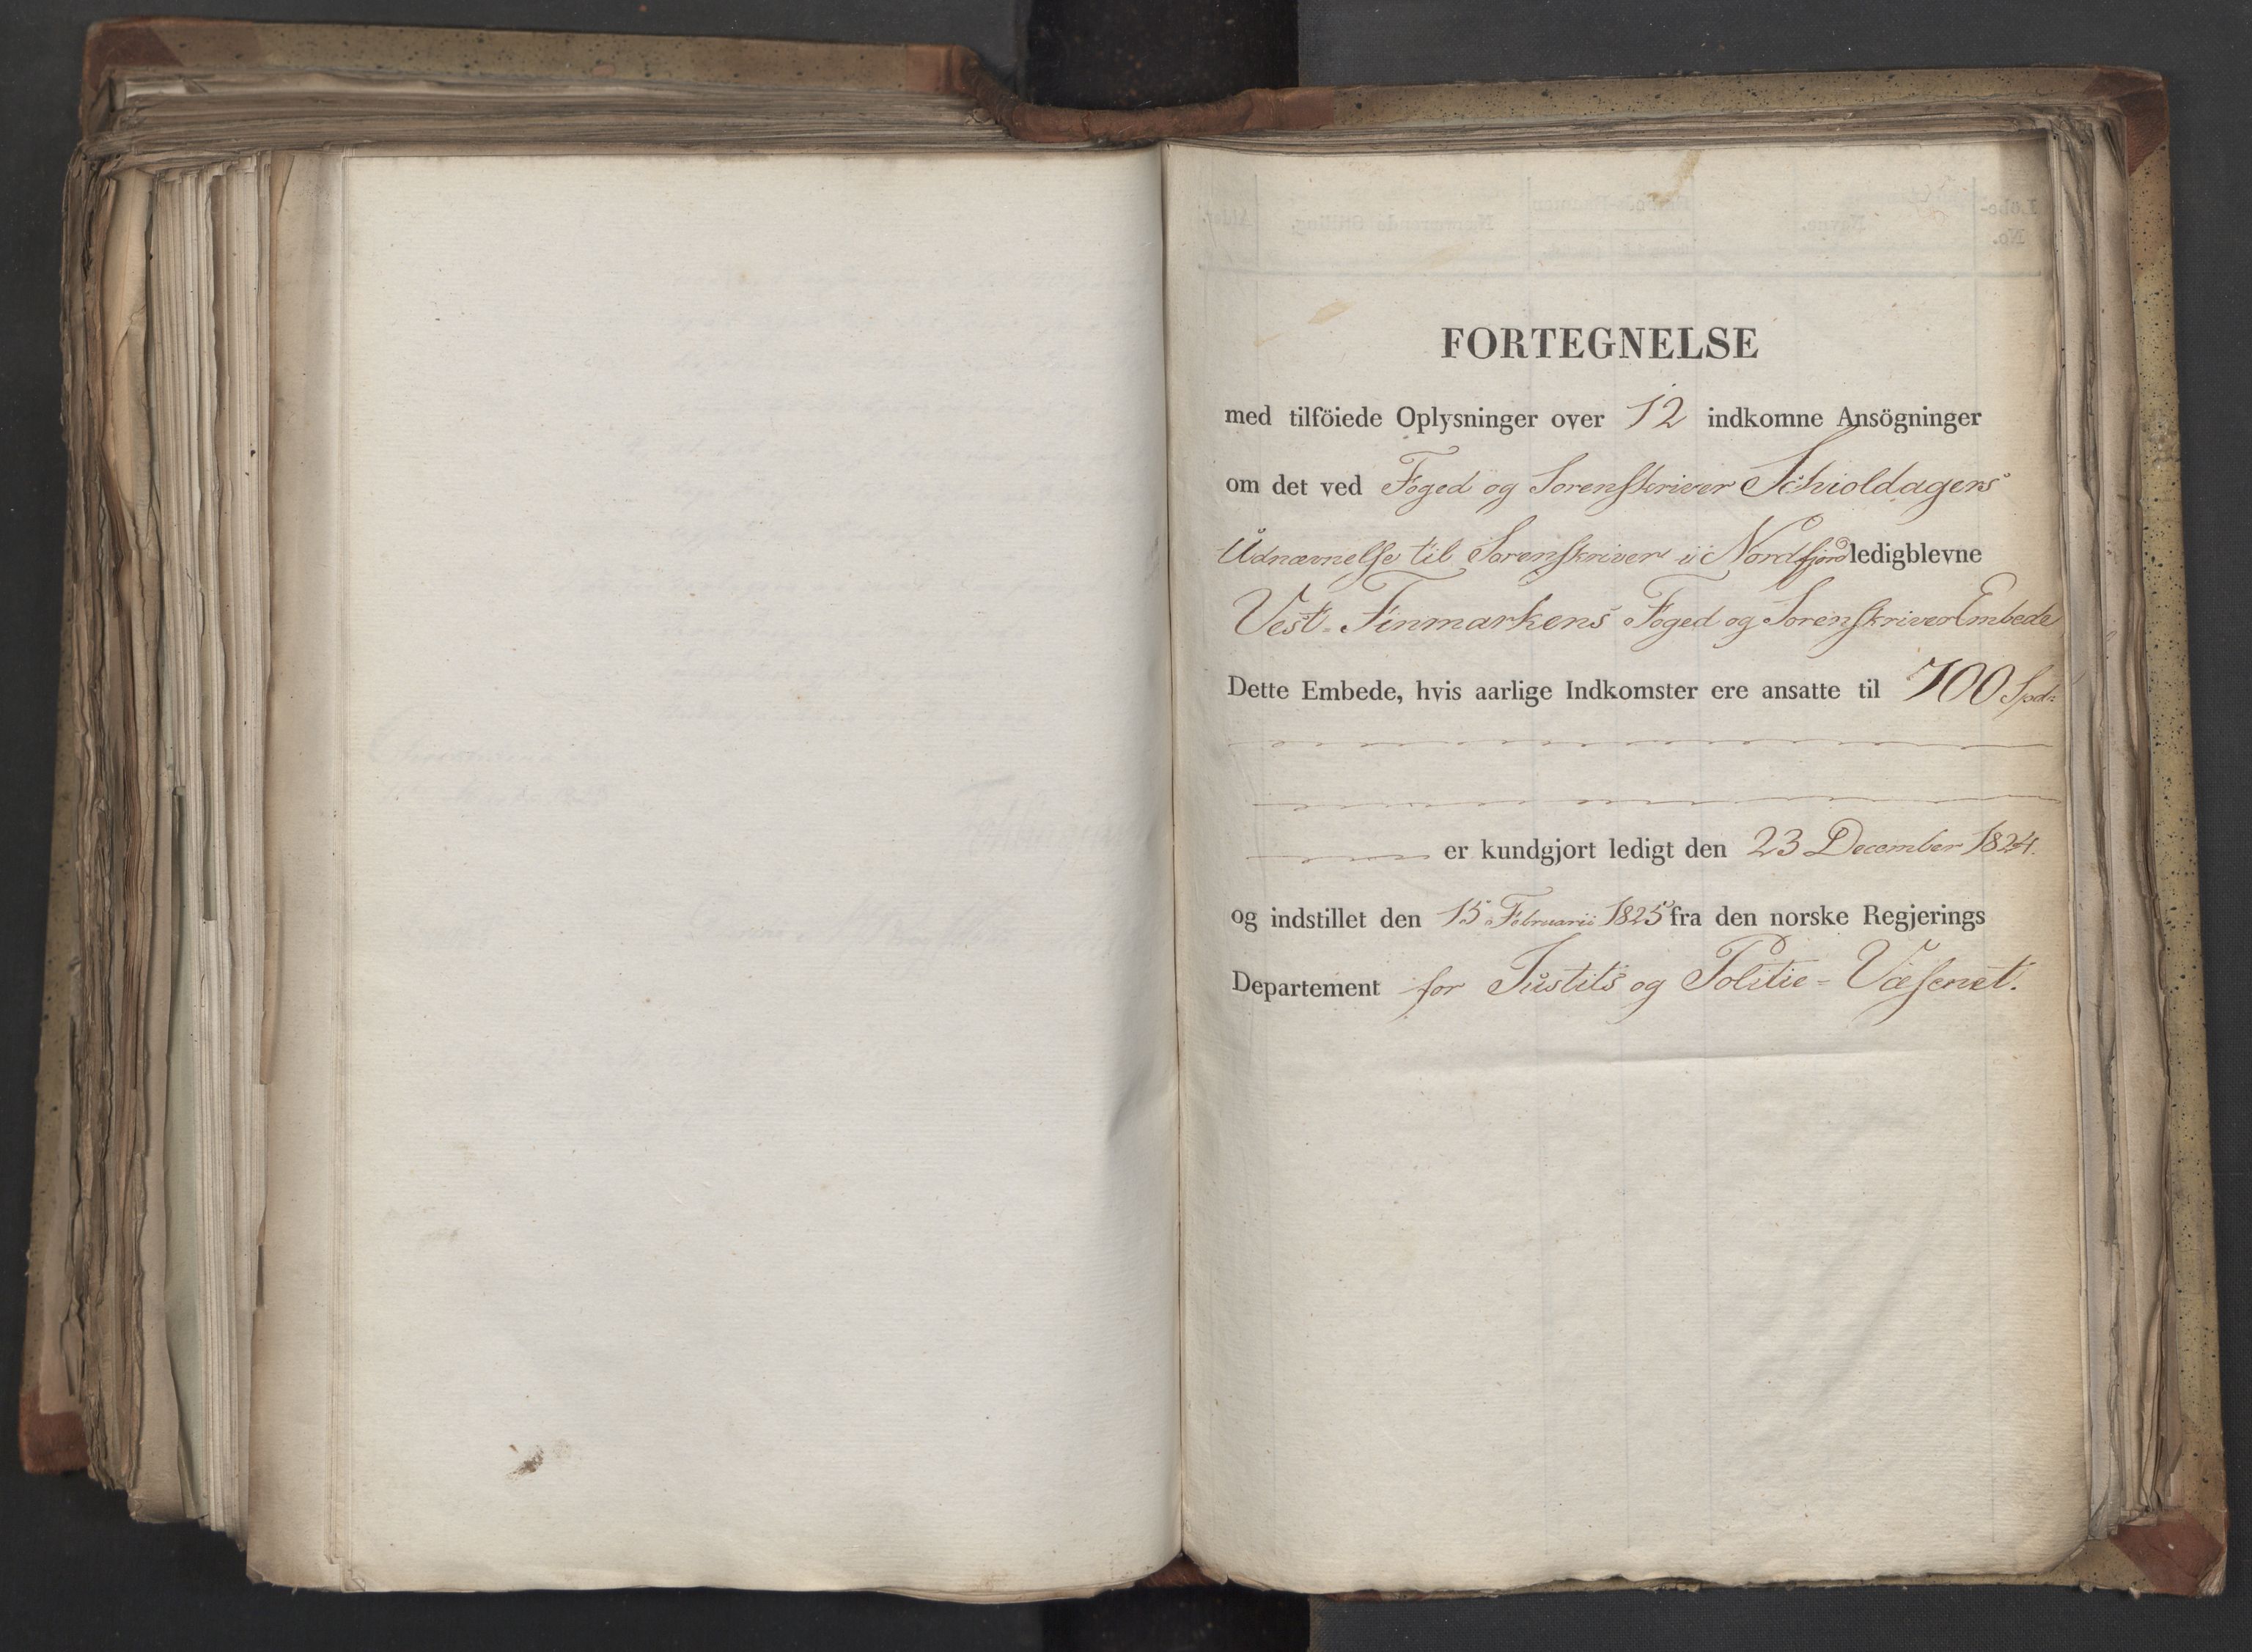 FORTEGNELSE
med tilföiede Oplysninger over 12 indkomne Ansögninger
om det ved Foged og Sorenskriver Schioldagers
Udnævnelse til Sorenskriver i Nordfjord ledigblevne
Vest-Finmarkens Foged og Sorenskriver Embede
Dette Embede, hvis aarlige Indkomster ere ansatte til 700 Spdr
er kundgjort ledigt den 23 December 1824.
og indstillet den 15 Februarii 1825 fra den norske Regjerings
Departement for Justits og Politie-Væsenet.